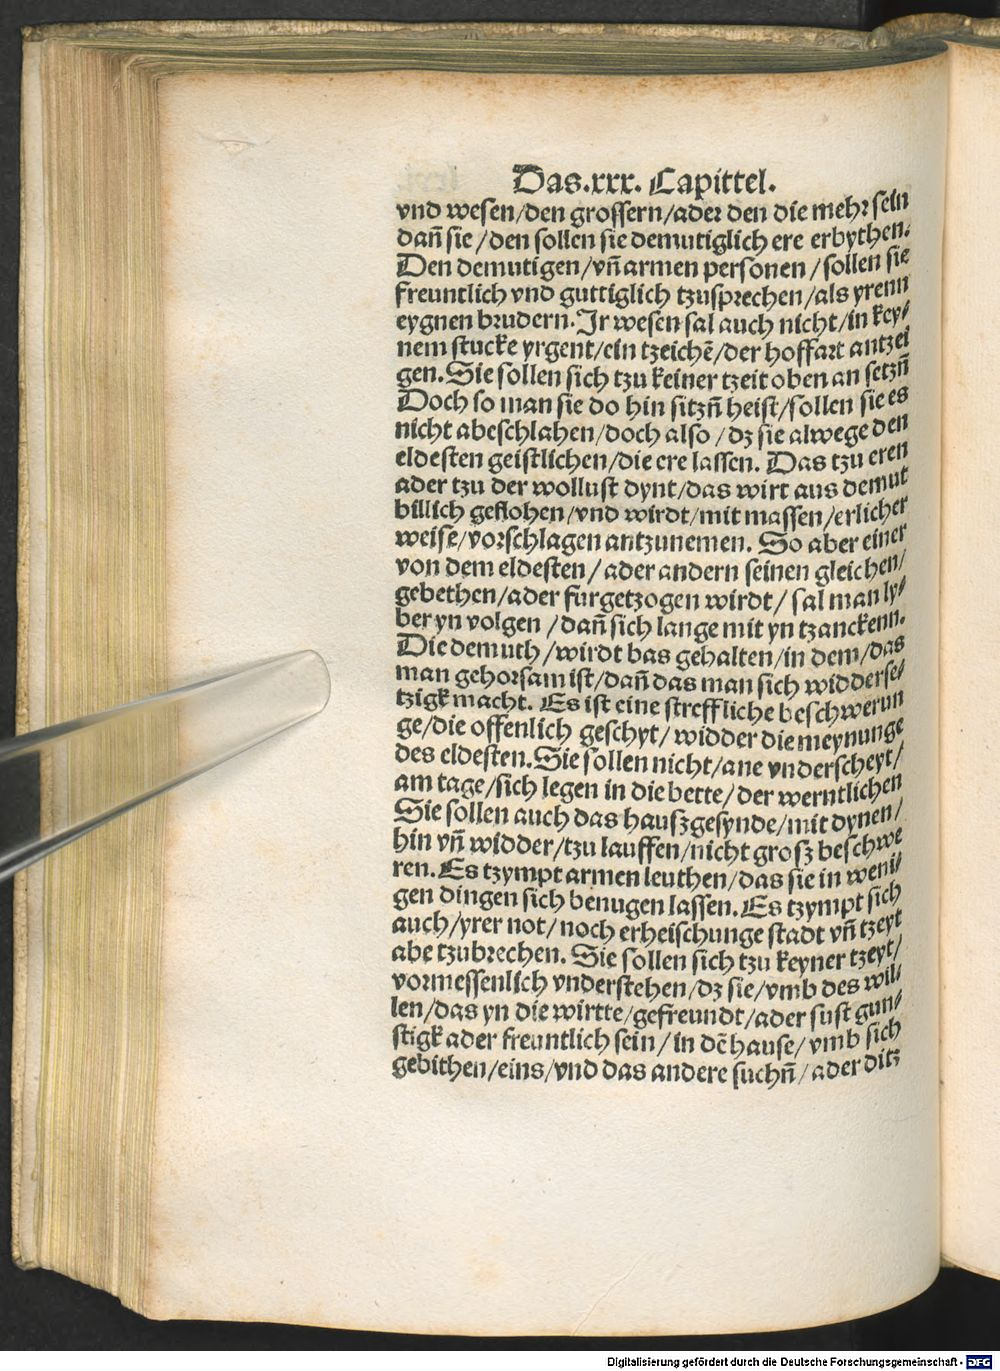 Das.xxx. Capittel.
vnd wesen/den grossern/ader den die mehr sein
dañ sie /den sollen sie demutiglich ere erbythen.
Den demutigen/vñ armen personen /sollen sie
freuntlich vnd guttiglich tzusprechen/als yrenn
eygnen brudern. Jr wesen sal auch nicht/in key⸗
nem stucke yrgent/ein tzeichē/der hoffart antzei
gen. Sie sollen sich tzu keiner tzeit oben an setzñ
Doch so man sie do hin sitzñ heist/sollen sie es
nicht abeschlahen/doch also /dz sie alwege den
eldesten geistlichen/die ere lassen. Das tzu eren
ader tzu der wollust dynt/das wirt aus demut
billich geflohen/vnd wirdt/mit massen/erlicher
weise/vorschlagen antzunemen. So aber einer
von dem eldesten/ ader andern seinen gleichen/
gebethen/ader furgetzogen wirdt/ sal man ly⸗
ber yn volgen /dañ sich lange mit yn tzanckenn.
Die demuth /wirdt bas gehalten/in dem/das
man gehorsam ist/dañ das man sich widderse⸗
tzigk macht. Es ist eine streffliche beschwerun
ge/die offenlich geschyt/ widder die meynunge
des eldesten. Sie sollen nicht/ane vnderscheyt/
am tage/sich legen in die bette/ der werntlichen
Sie sollen auch das haußgesynde/mit dynen/
hin vñ widder/tzu lauffen/nicht groß beschwe
ren. Es tzympt armen leuthen/das sie in weni⸗
gen dingen sich benugen lassen. Es tzympt sich
auch/yrer not/ noch erheischunge stadt vñ tzeyt
abe tzubrechen. Sie sollen sich tzu keyner tzeyt/
vormessenlich vnderstehen/dz sie/vmb des wil⸗
len/das yn die wirtte/gefreundt/ader sust gun⸗
stigk ader freuntlich sein/ in dē hause/ vmb sich
gebithen/eins/vnd das andere suchñ/ ader ditz
Digitalisierung gefördert durch die Deutsche Forschungsgemeinschaft - DFG